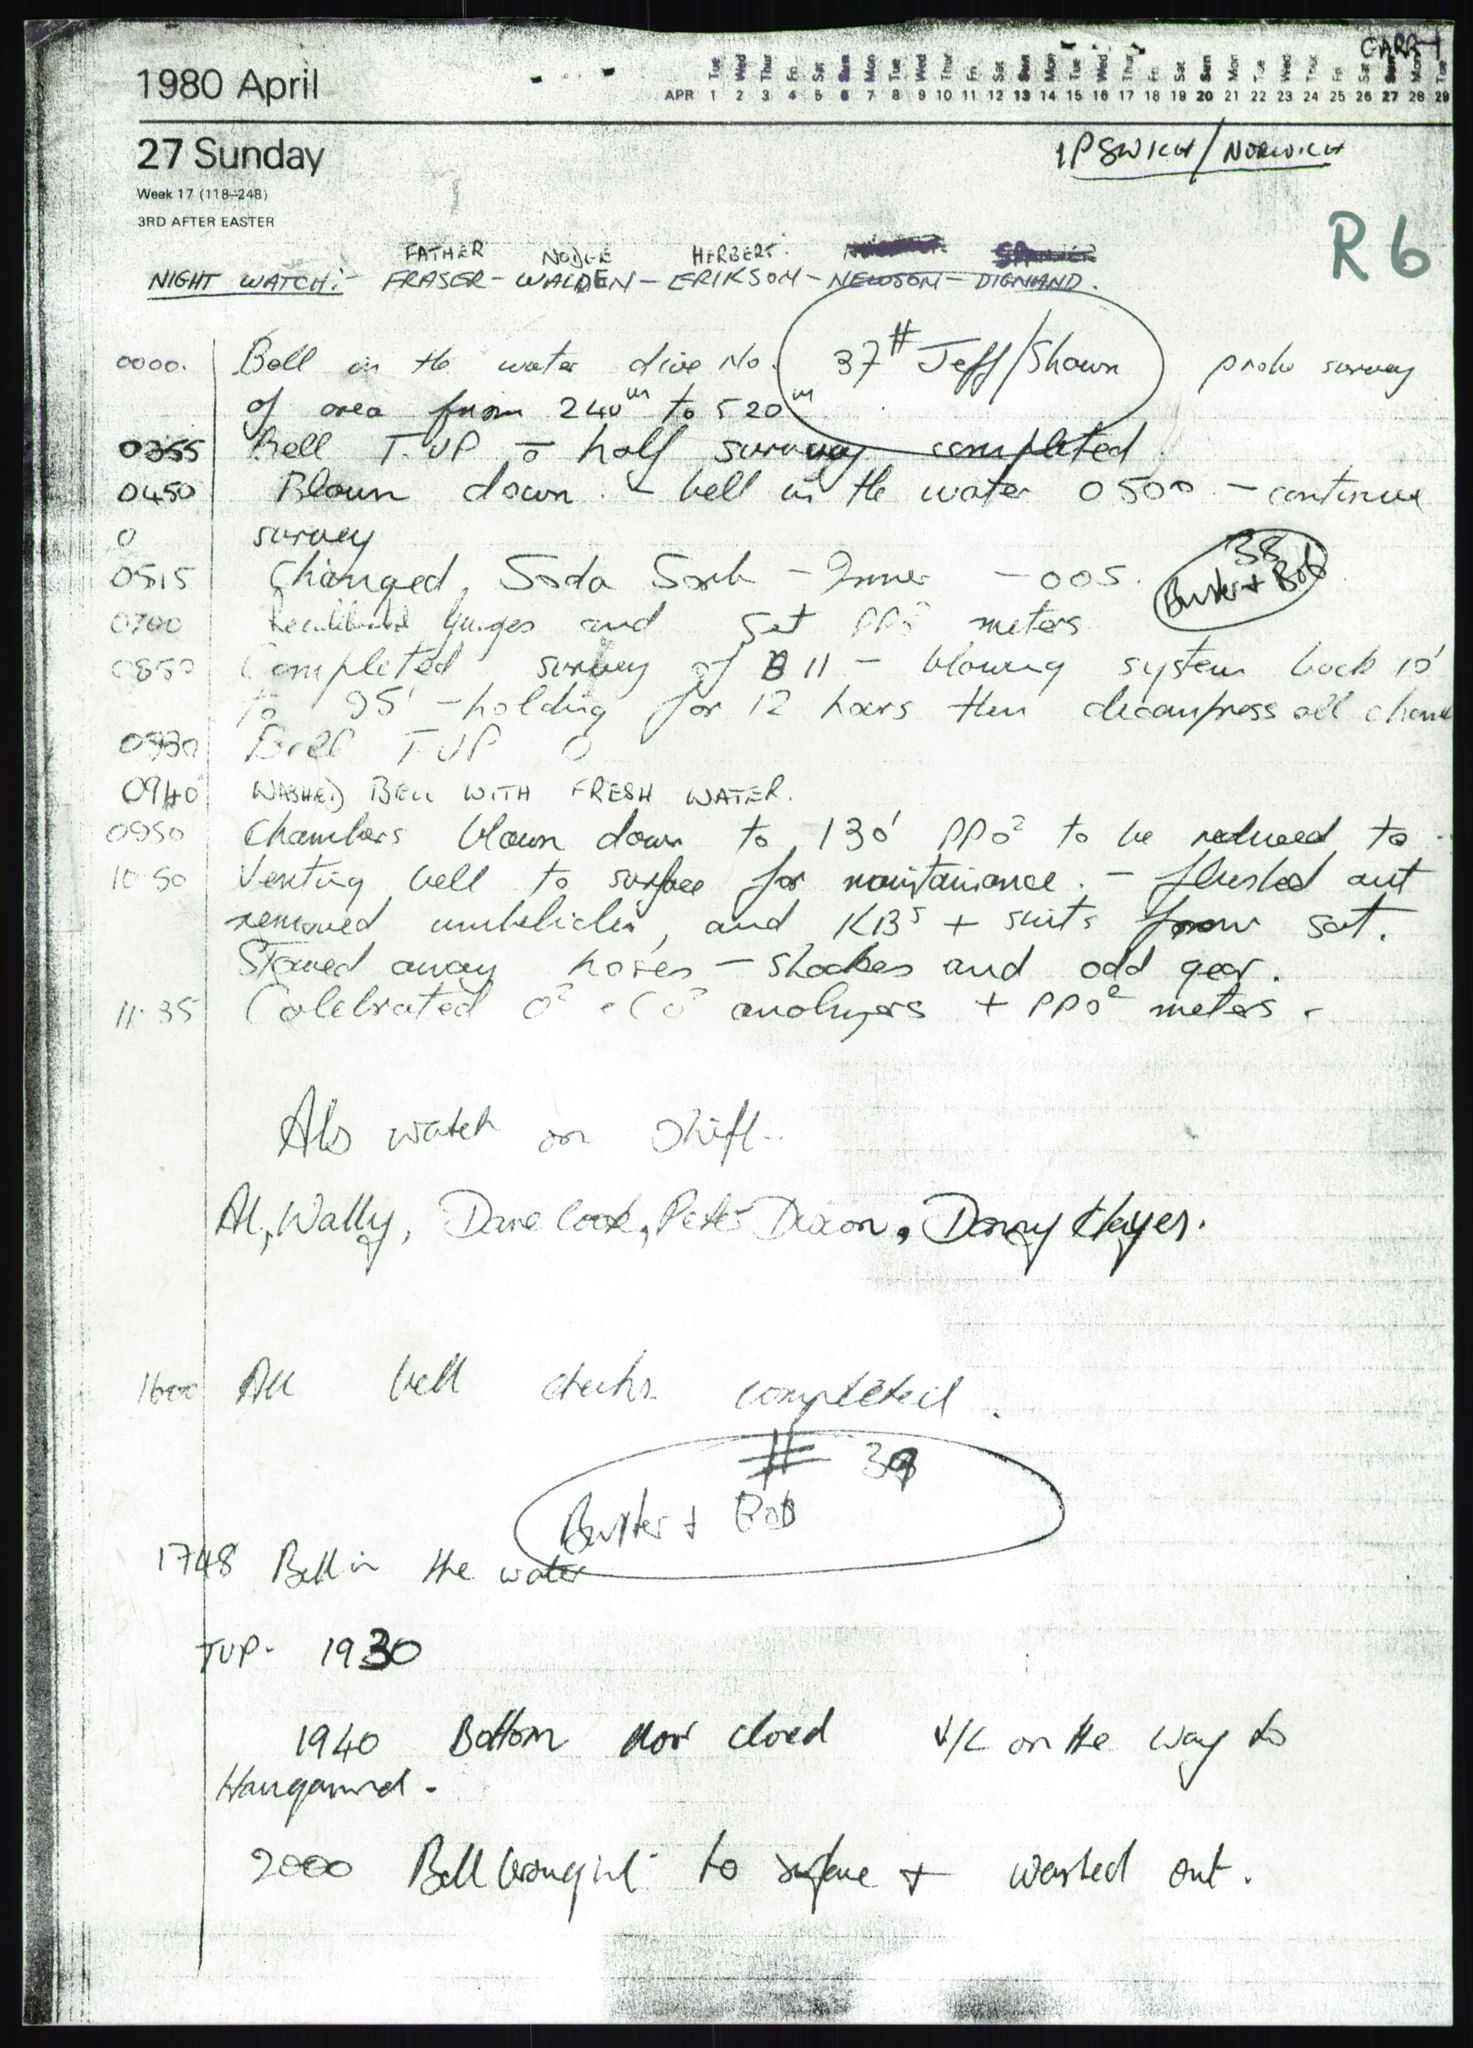 CARR 1
1980 April
Tue Wed Thur Fri Sat Sun Mon Tue Wed Thur Fri Sat Sun Mon Tue Wed Thur Fri Sat Sun Mon Tue Wed Thur Fri Sat Sun Mon Tue
APR 1 2 3 4 5 6 7 8 9 10 11 12 13 14 15 16 17 18 19 20 21 22 23 24 25 26 27 28 29
27 Sunday
IPSWICH/NORWICH
Week 17 (118–248)
3RD AFTER EASTER
R 6
FATHER NODGE HERBERT.
NIGHT WATCH:- FRASER - WALDEN - ERIKSON - NEWSOM - DIGNAND.
0000. Bell in the water dive No. 37# Jeff/Shawn probe survey
of area from 240m to 520m
0355 Bell T.UP - half survey completed.
0450 Blown down. - bell in the water 0500 - continue
0 survey
38
0515 Changed Soda Sorb - Inner - 005.
Buster + Bob
0700 Gauges and set PPO2 meters
0850 Completed survey of B11 - blowing system back 10'
to 95' - holding for 12 hours then decompress all cham
0930 Bell T.UP
0940 WASHED BELL WITH FRESH WATER.
0950 Chambers blown down to 130' PPO2 to be reduced to
10.50 Venting bell to surface for maintainance. - flushed out
removed umbilicles, and KBs + suits from sat.
Stowed away hoses - shackles and odd gear.
11.35 Calebrated O2 + CO2 analysers + PPO2 meters.
Als watch on shift.
Al, Wally, Dave Cook, Peter Dixon, Danny Hayes.
1600 All bell checks completed.
# 39
Buster + Bob
1748 Bell in the water
TUP. 1930
1940 Bottom door closed V/L on the way to
Haugesund.
2000 Bell brought to surface + washed out.